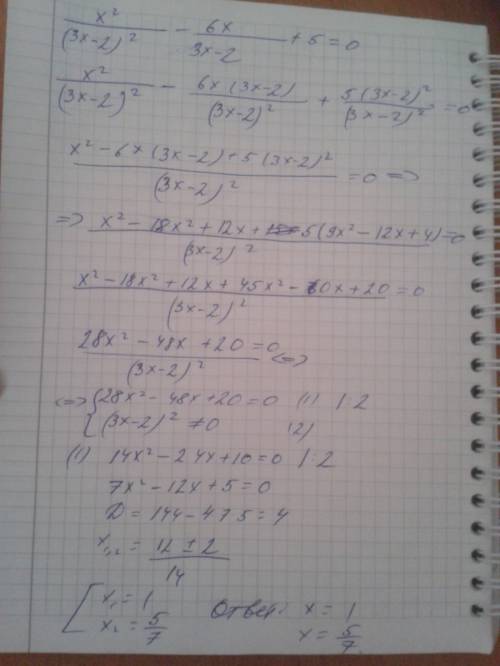 x²/(3x-2)² - 6x/(3x-2) + 5 = 0
x²/(3x-2)² - 6x(3x-2)/(3x-2)² + 5(3x-2)²/(3x-2)² = 0
(x² - 6x(3x-2) + 5(3x-2)²)/(3x-2)² = 0 =>
=> (x² - 18x² + 12x + 5(9x² - 12x + 4))/(3x-2)² = 0
(x² - 18x² + 12x + 45x² - 60x + 20)/(3x-2)² = 0
(28x² - 48x + 20)/(3x-2)² = 0 <=>
<=> { 28x² - 48x + 20 = 0 (1) |·2
{ (3x-2)² ≠ 0 (2)
(1) 14x² - 24x + 10 = 0 |·2
7x² - 12x + 5 = 0
D = 144 - 4·7·5 = 4
x₁,₂ = (12 ± 2)/14
[ x₁ = 1 Ответ: x = 1
x₂ = 5/7 x = 5/7.